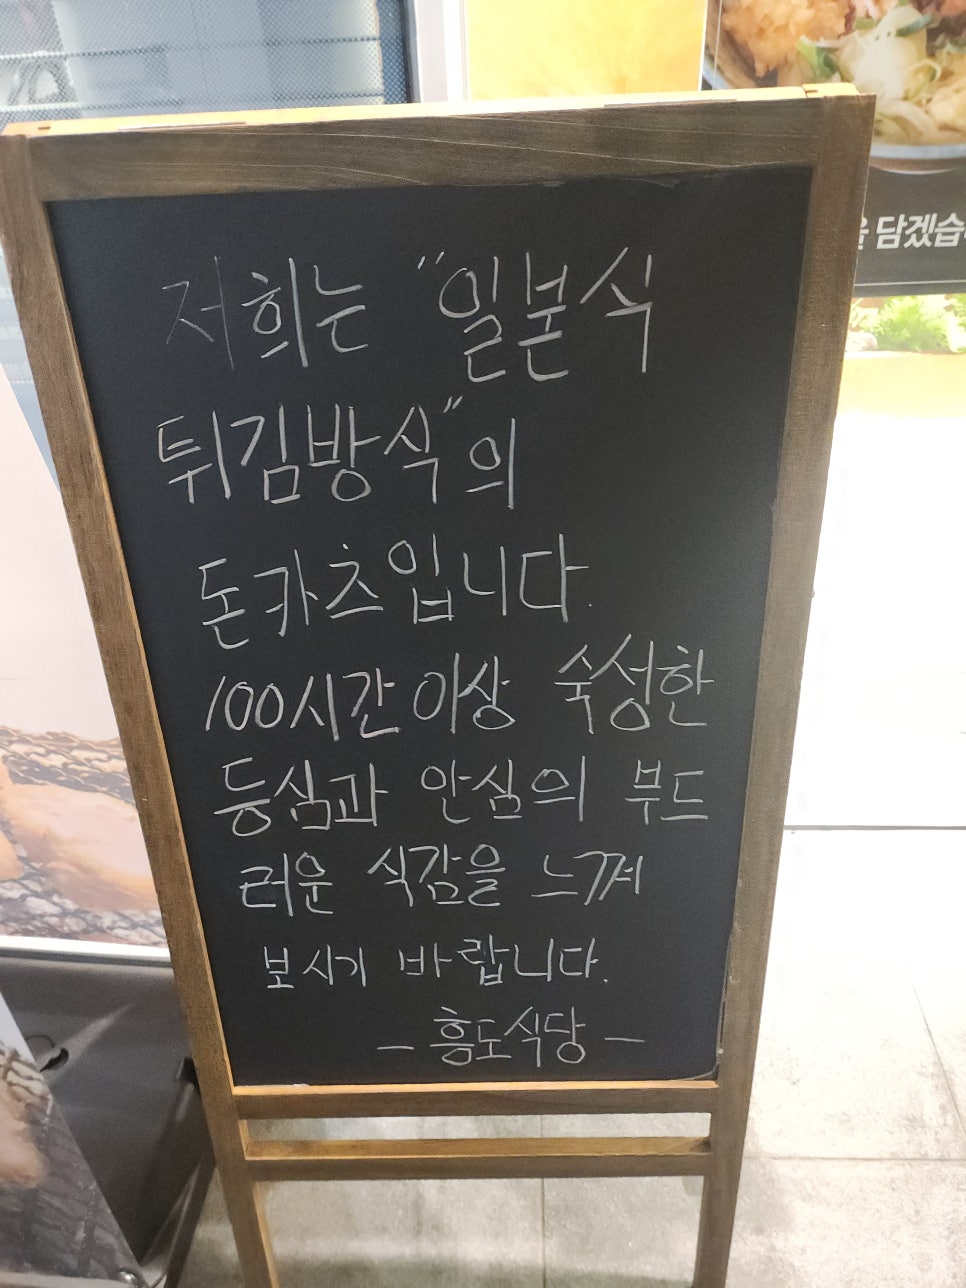 저희는 "일본식
튀김방식"의
돈카츠입니다.
100시간 이상 숙성한
등심과 안심의 부드
러운 식감을 느껴
보시기 바랍니다.
- 흥도식당 -
을 담겠습